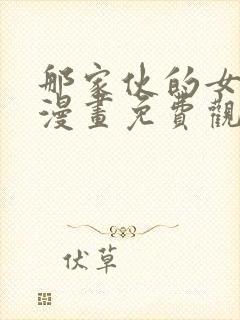 那家伙的女
漫畫免費觀
伏草